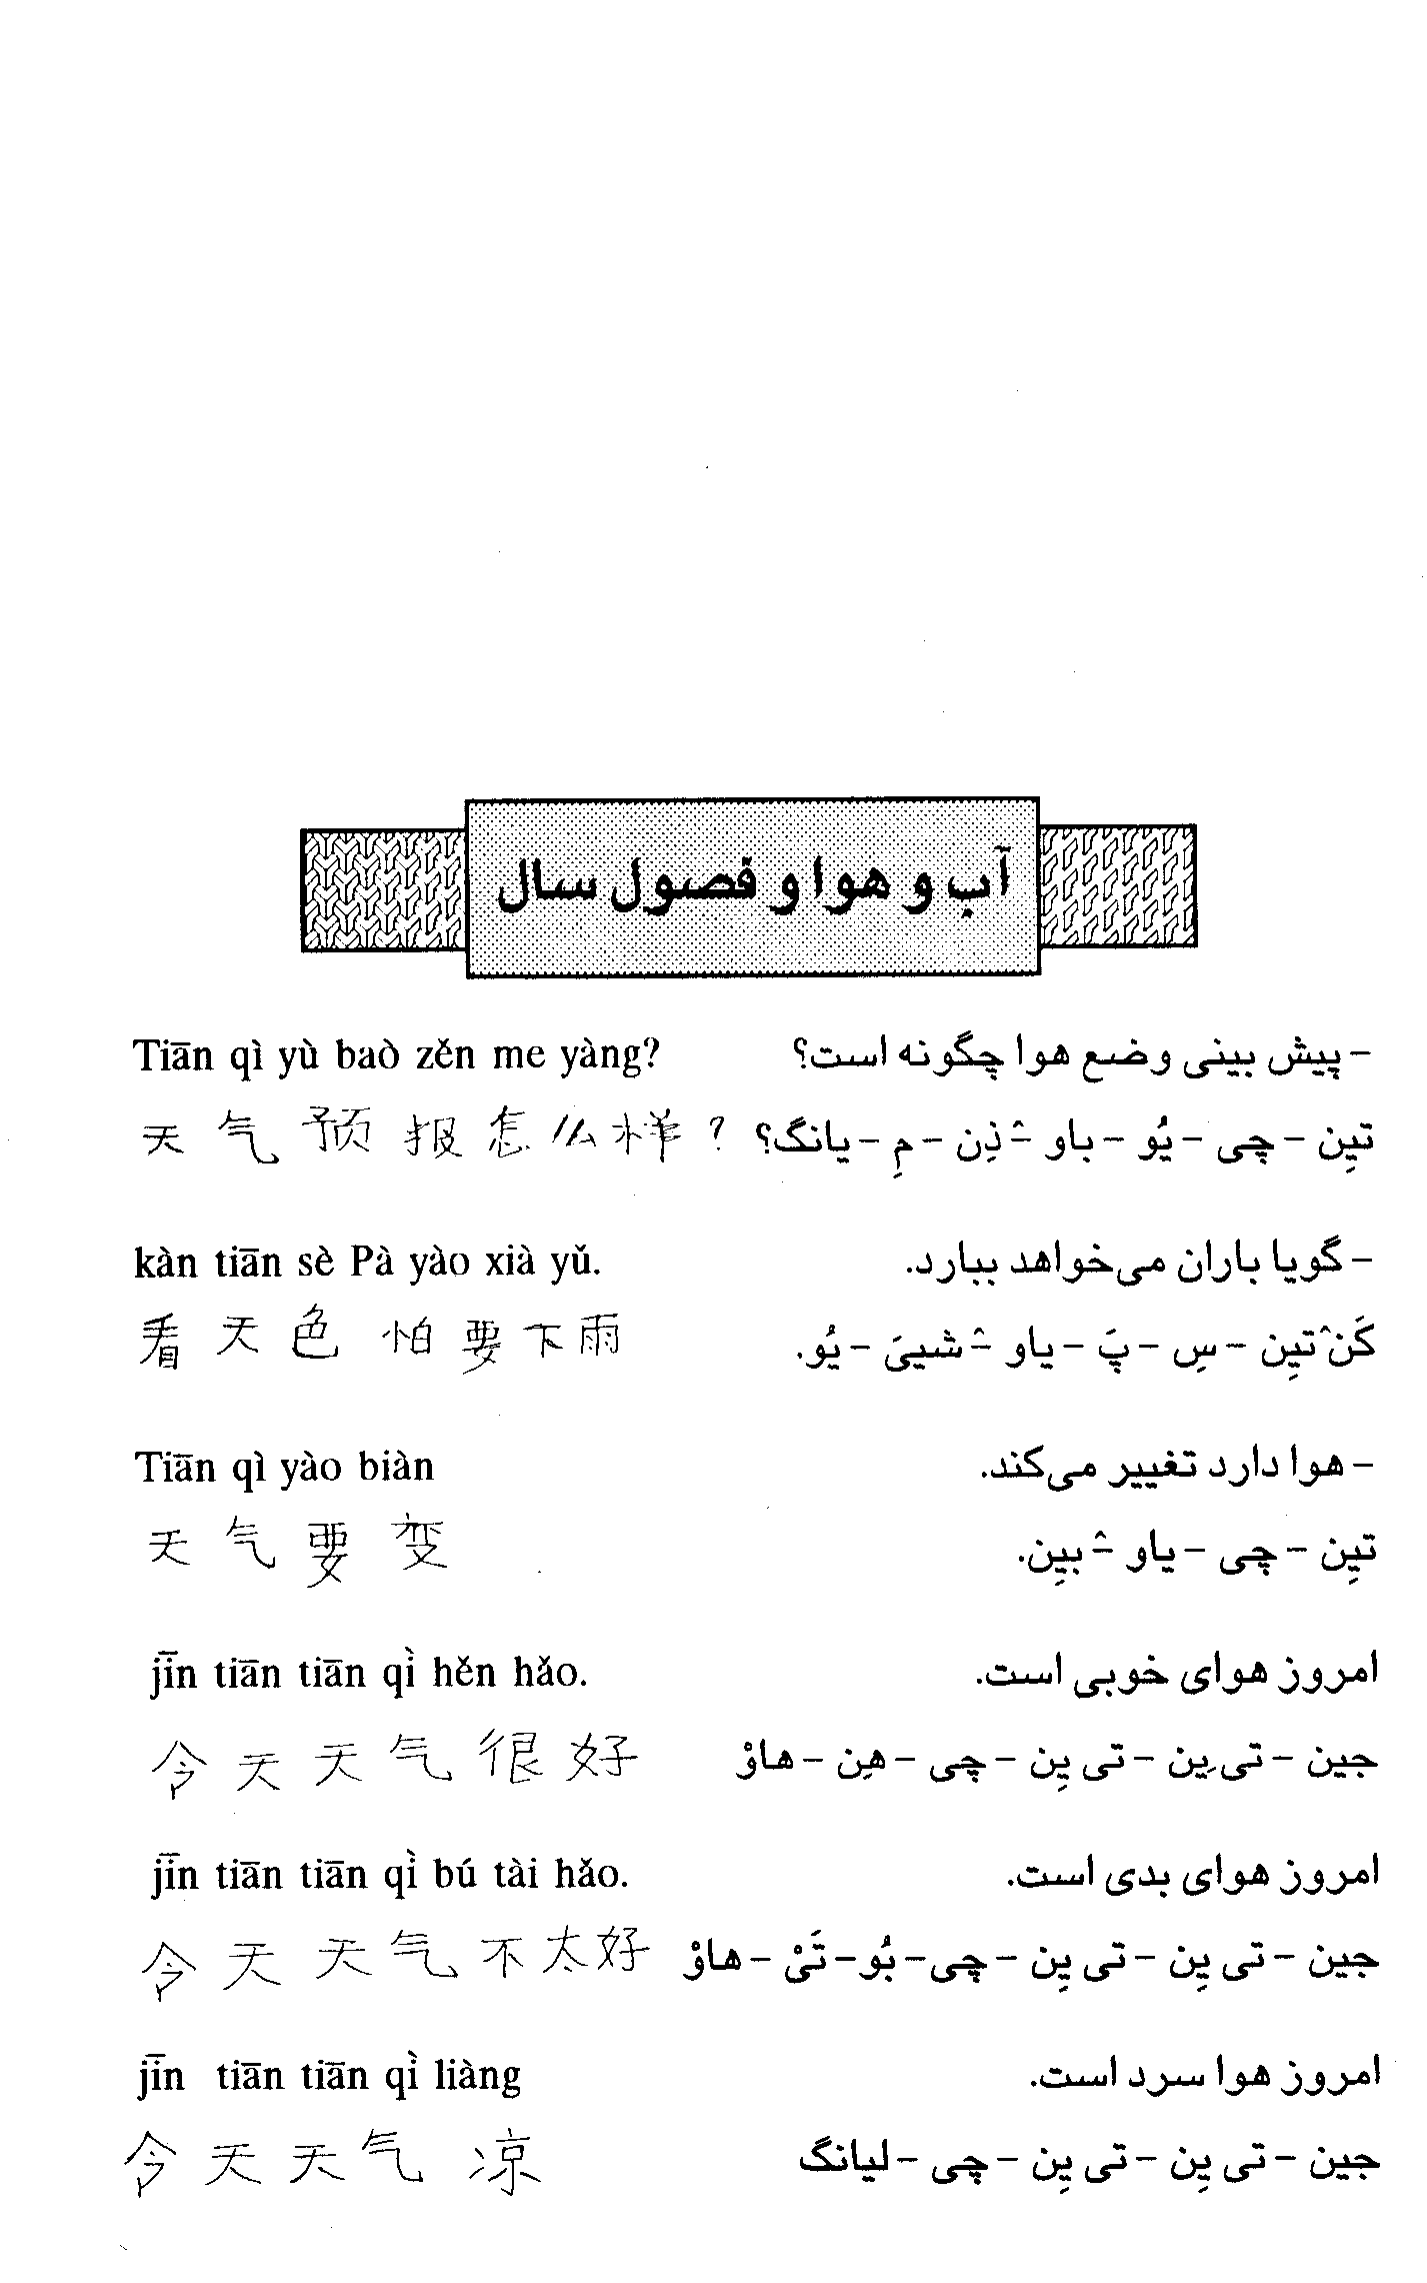 آب و هوا و فصول سال
Tiān qì yù baò zěn me yàng?
– پیش بینی وضع هوا چگونه است؟
天气预报怎么样?
تیِن – چی – یُو – باو – ذِن – مِ – یانگ؟
kàn tiān sè Pà yào xià yǔ.
– گویا باران می‌خواهد ببارد.
看天色怕要下雨
کَن تیِن – سِ – پَ – یاو – شییَ – یُو.
Tiān qì yào biàn
– هوا دارد تغییر می‌کند.
天气要变
تیِن – چی – یاو – بیِن.
jīn tiān tiān qì hěn hǎo.
امروز هوای خوبی است.
今天天气很好
جین – تی یِن – تی یِن – چی – هِن – هاوْ
jīn tiān tiān qì bú tài hǎo.
امروز هوای بدی است.
今天天气不太好
جین – تی یِن – تی یِن – چی – بُو – تَیْ – هاوْ
jīn tiān tiān qì liàng
امروز هوا سرد است.
今天天气凉
جین – تی یِن – تی یِن – چی – لیانگ